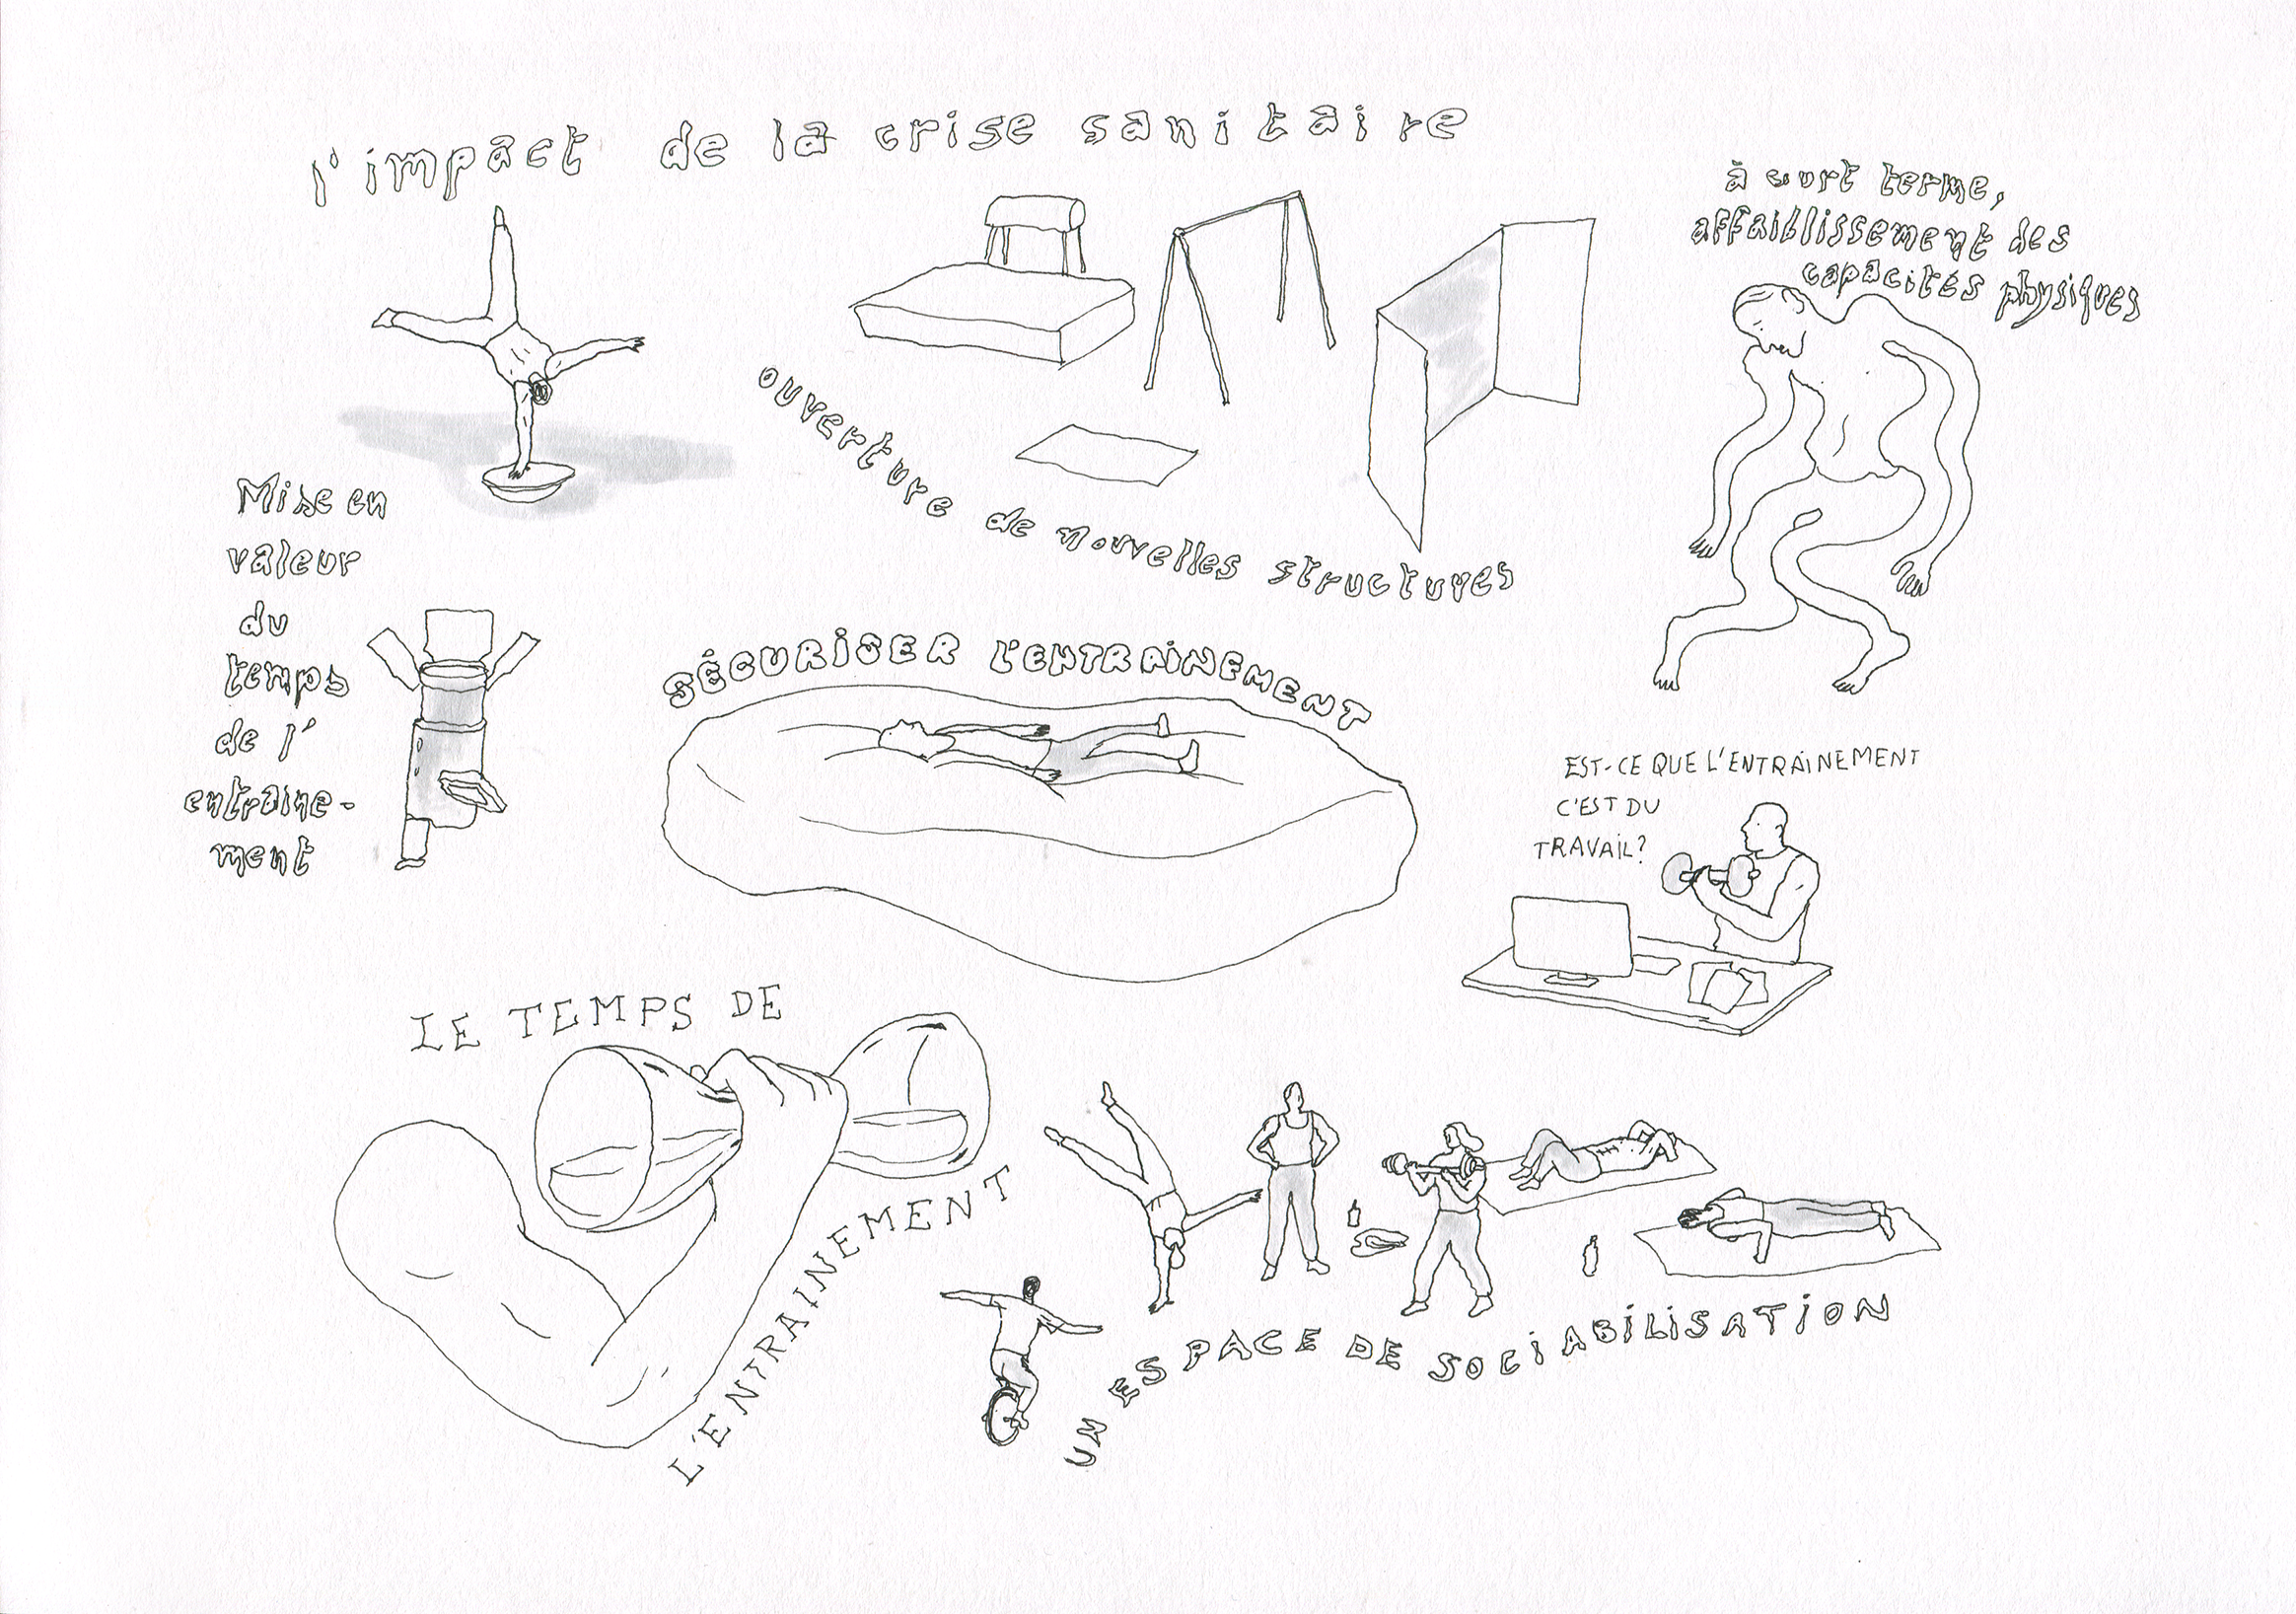 l'impact de la crise sanitaire
à court terme,
affaiblissement des
capacités physiques
ouverture de nouvelles structures
Mise en
valeur
du
temps
de l'
entraine-
ment
SÉCURISER L'ENTRAINEMENT
EST-CE QUE L'ENTRAINEMENT
C'EST DU
TRAVAIL?
LE TEMPS DE
L'ENTRAINEMENT
UN ESPACE DE SOCIABILISATION